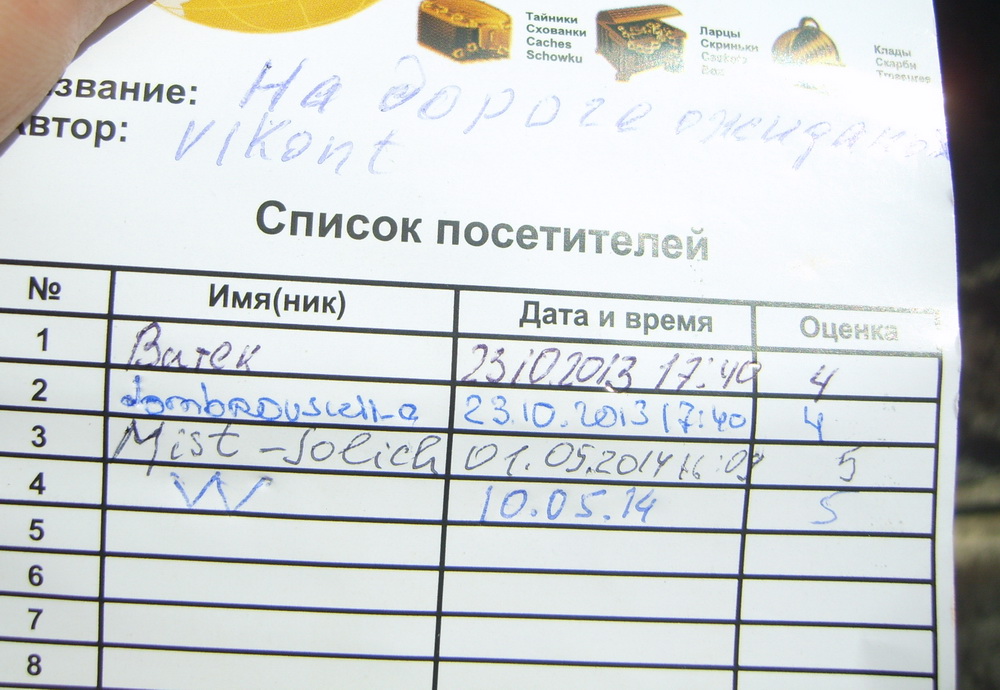 Тайники
Схованки
Caches
Schowku
Ларцы
Скриньки
Клады
Скарби
Treasures
звание: На дороге
втор: Vikont
Список посетителей
№ Имя(ник) Дата и время Оценка
1 Витек 23.10.2013 17:40 4
2 23.10.2013 17:40 4
3 Mist-Solich 01.05.2014 5
4 W 10.05.14 5
5
6
7
8